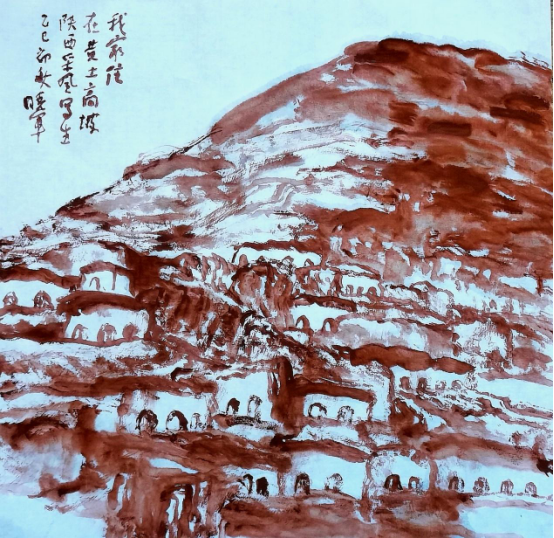 我家住
在黄土高坡
陕西采风写生
乙巳初秋晓军